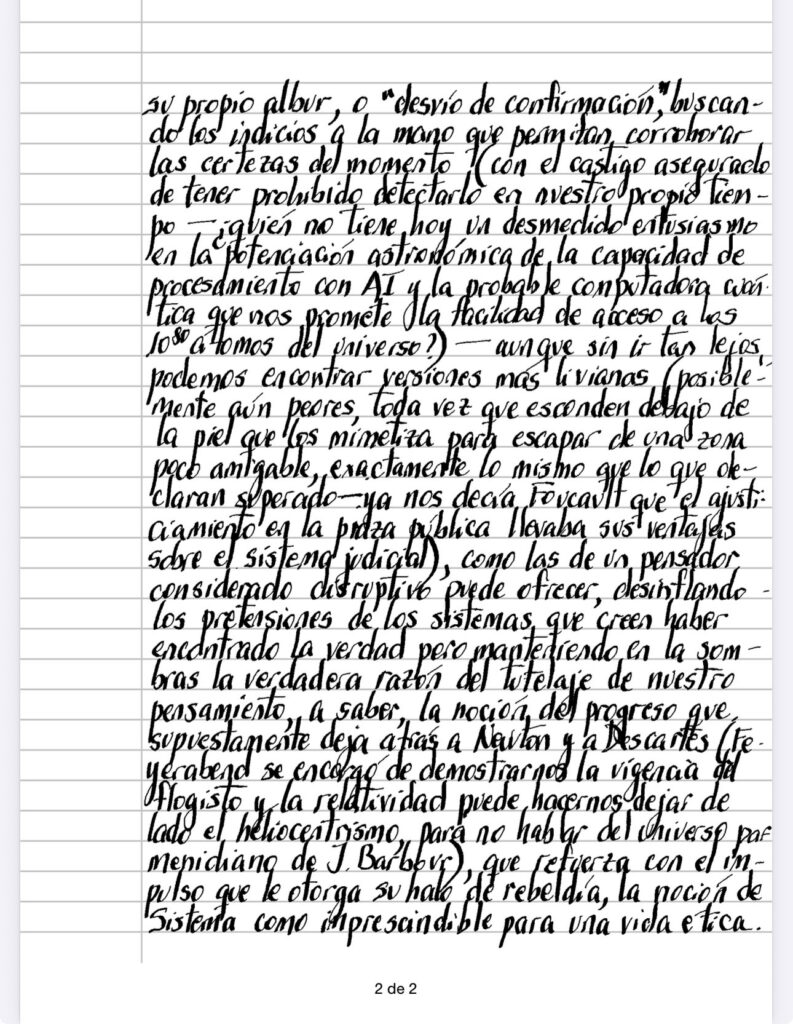 su propio albur, o "desvío de confirmación," buscan-
do los indicios a la mano que permitan corroborar
las certezas del momento (con el castigo asegurado
de tener prohibido detectarlo en nuestro propio tiem-
po — ¿quién no tiene hoy un desmedido entusiasmo
en la potenciación astronómica de la capacidad de
procesamiento con AI y la probable computadora cuán-
tica que nos promete la facilidad de acceso a los
10⁸⁰ átomos del universo?) — aunque sin ir tan lejos,
podemos encontrar versiones más livianas (posible-
mente aún peores, toda vez que esconden debajo de
la piel que los mimetiza para escapar de una zona
poco amigable, exactamente lo mismo que lo que de-
claran superado — ya nos decía Foucault que el ajusti-
ciamiento en la plaza pública llevaba sus ventajas
sobre el sistema judicial), como las de un pensador
considerado disruptivo puede ofrecer, desinflando
los pretensiones de los sistemas que creen haber
encontrado la verdad pero manteniendo en la som-
bras la verdadera razón del tutelaje de nuestro
pensamiento, a saber, la noción del progreso que
supuestamente deja atrás a Newton y a Descartes (Fe-
yerabend se encargó de demostrarnos la vigencia del
flogisto y la relatividad puede hacernos dejar de
lado el heliocentrismo, para no hablar del universo par
menidiano de J. Barbour), que refuerza con el im-
pulso que le otorga su halo de rebeldía, la noción de
Sistema como imprescindible para una vida ética.
2 de 2